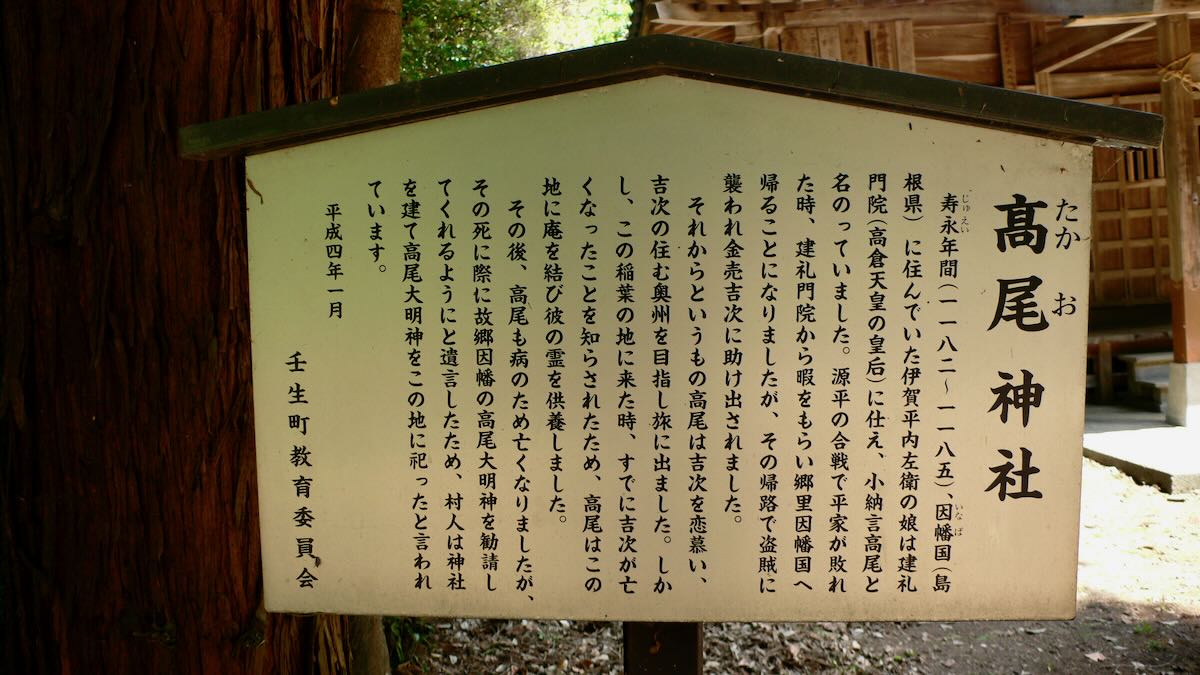 髙尾神社
たか お
寿永年間(一一八二〜一一八五)、因幡国(島
じゅえい
いなば
根県)に住んでいた伊賀平内左衛の娘は建礼
門院(高倉天皇の皇后)に仕え、小納言高尾と
名のっていました。源平の合戦で平家が敗れ
た時、建礼門院から暇をもらい郷里因幡国へ
帰ることになりましたが、その帰路で盗賊に
襲われ金売吉次に助け出されました。
それからというもの高尾は吉次を恋慕い、
吉次の住む奥州を目指し旅に出ました。しか
し、この稲葉の地に来た時、すでに吉次が亡
くなったことを知らされたため、高尾はこの
地に庵を結び彼の霊を供養しました。
その後、高尾も病のため亡くなりましたが、
その死に際に故郷因幡の高尾大明神を勧請し
てくれるようにと遺言したため、村人は神社
を建て高尾大明神をこの地に祀ったと言われ
ています。
平成四年一月
壬生町教育委員会